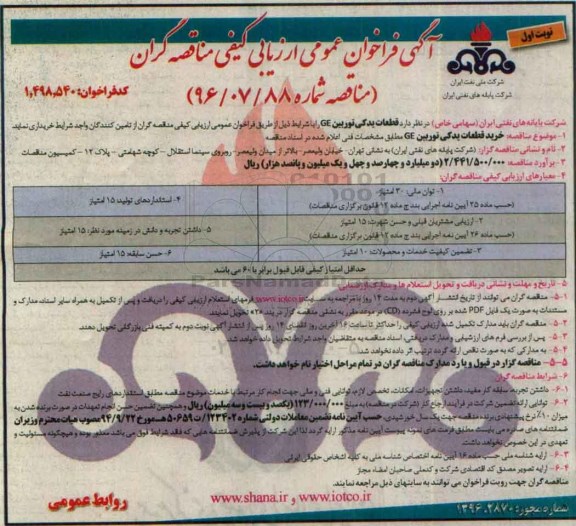 نوبت اول
شرکت ملی نفت ایران
شرکت پایانه های نفتی ایران
آگهی فراخوان عمومی ارزیابی کیفی مناقصه گران
(مناقصه شماره ۹۶/۰۷/۸۸)
کدفراخوان: ۱,۴۹۸,۵۴۰
شرکت پایانه های نفتی ایران (سهامی خاص) در نظر دارد قطعات یدکی توربین GE را با شرایط ذیل از طریق فراخوان عمومی ارزیابی کیفی مناقصه گران از تامین کنندگان واجد شرایط خریداری نماید.
۱- موضوع مناقصه: خرید قطعات یدکی توربین GE مطابق مشخصات فنی اعلام شده در اسناد مناقصه
۲- نام و نشانی مناقصه گزار: (شرکت پایانه های نفتی ایران) به نشانی تهران- خیابان ولیعصر- بالاتر از میدان ولیعصر- روبروی سینما استقلال - کوچه شهامتی - پلاک ۱۲ - کمیسیون مناقصات
۳- برآورد مناقصه: ۲/۴۴۱/۵۰۰/۰۰۰ (دو میلیارد و چهارصد و چهل و یک میلیون و پانصد هزار) ریال
۴- معیارهای ارزیابی کیفی مناقصه گران:
۱- توان مالی: ۳۰ امتیاز
(حسب ماده ۲۵ آیین نامه اجرایی بند ج ماده ۱۲ قانون برگزاری مناقصات)
۴- استانداردهای تولید: ۱۵ امتیاز
۲- ارزیابی مشتریان قبلی و حسن شهرت: ۱۵ امتیاز
(حسب ماده ۲۶ آیین نامه اجرایی بند ج ماده ۱۲ قانون برگزاری مناقصات)
۵- داشتن تجربه و دانش در زمینه مورد نظر: ۱۵ امتیاز
۳- تضمین کیفیت خدمات و محصولات: ۱۰ امتیاز
۶- حسن سابقه: ۱۵ امتیاز
حداقل امتیاز کیفی قابل قبول برابر با ۶۰ می باشد
۵- تاریخ و مهلت و نشانی دریافت و تحویل استعلام ها و مدارک ارزیابی:
۵-۱- مناقصه گران می توانند از تاریخ انتشار آگهی دوم به مدت ۱۴ روز با مراجعه به سایت www.iotco.ir فرمهای استعلام ارزیابی کیفی را دریافت و پس از تکمیل به همراه سایر اسناد، مدارک و
مستندات به صورت یک فایل PDF شده بر روی لوح فشرده (CD) در موعد مقرر به نشانی مناقصه گزار در بند ۲ تحویل نمایند.
۵-۲- مناقصه گران باید مدارک تکمیل شده ارزیابی کیفی را حداکثر تا ساعت ۱۶ آخرین روز انقضای ۱۴ روز پس از انتشار آگهی نوبت دوم به کمیته فنی بازرگانی تحویل دهند.
۵-۳- پس از بررسی فرم های ارزشیابی و مدارک دریافتی اسناد مناقصه به متقاضیان واجد شرایط تحویل داده خواهد شد.
۵-۴- به مدارکی که به صورت ناقص ارائه گردد ترتیب اثر داده نخواهد شد.
۵-۵- مناقصه گزار در قبول و یا رد مدارک مناقصه گران در تمام مراحل اختیار تام خواهد داشت.
۶- شرایط مناقصه گران:
۶-۱- داشتن تجربه، سابقه کار مفید، داشتن تجهیزات، امکانات، تخصص لازم، توانایی فنی و مالی جهت انجام کار مرتبط با خدمات موضوع مناقصه مطابق استانداردهای رایج صنعت نفت
۶-۲- توانایی ارائه تضمین شرکت در فرایند ارجاع کار (شرکت در مناقصه) به مبلغ ۱۲۳/۰۰۰/۰۰۰ (یکصد و بیست و سه میلیون) ریال و همچنین تضمین حسن انجام تعهدات در صورت برنده شدن به
میزان ۱۰٪ نرخ پیشنهادی برنده مناقصه جهت یک سال خورشیدی، حسب آیین نامه تضمین معاملات دولتی شماره ۱۲۳۴۰۲/ت۵۰۶۵۹هـ مورخ ۹۴/۹/۲۲ مصوب هیات محترم وزیران
تعهدی در این خصوص نخواهد داشت.
۶-۳- ارایه شناسه ملی حسب ماده ۱۶ آیین نامه اختصاص شناسه ملی به کلیه اشخاص حقوقی ایرانی
۶-۴- ارایه تصویر مصدق کد اقتصادی شرکت و کدملی صاحبان امضاء مجاز
مناقصه گران جهت رویت فراخوان می توانند به سایتهای ذیل مراجعه نمایند.
www.iotco.ir و www.shana.ir
روابط عمومی
شماره مجوز: ۱۳۹۶.۲۸۷۰